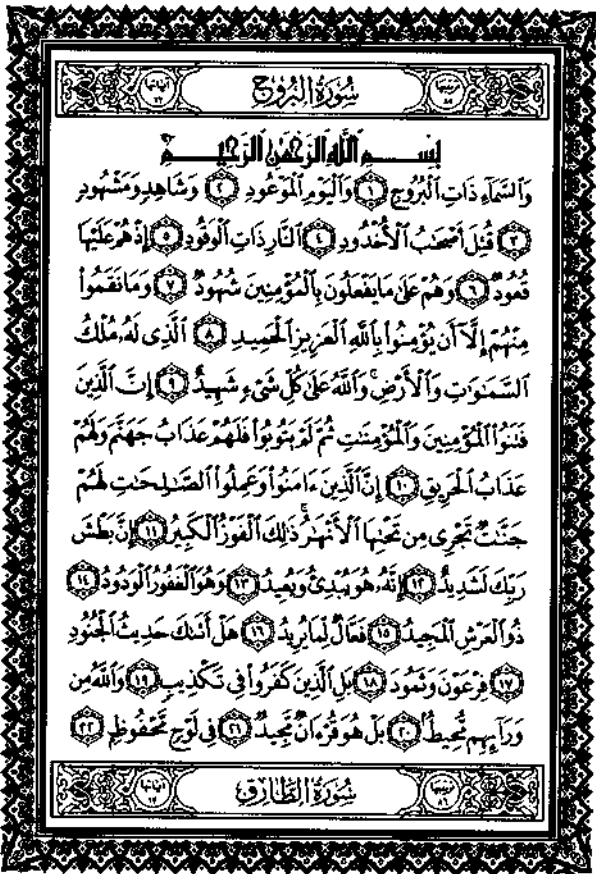 ترتيبها ٨٥ سُورَةُ الْبُرُوجِ آياتها ٢٢
بِسْمِ اللَّهِ الرَّحْمَٰنِ الرَّحِيمِ
وَٱلسَّمَآءِ ذَاتِ ٱلْبُرُوجِ ١ وَٱلْيَوْمِ ٱلْمَوْعُودِ ٢ وَشَاهِدٍ وَمَشْهُودٍ
٣ قُتِلَ أَصْحَٰبُ ٱلْأُخْدُودِ ٤ ٱلنَّارِ ذَاتِ ٱلْوَقُودِ ٥ إِذْ هُمْ عَلَيْهَا
قُعُودٌ ٦ وَهُمْ عَلَىٰ مَا يَفْعَلُونَ بِٱلْمُؤْمِنِينَ شُهُودٌ ٧ وَمَا نَقَمُوا۟
مِنْهُمْ إِلَّآ أَن يُؤْمِنُوا۟ بِٱللَّهِ ٱلْعَزِيزِ ٱلْحَمِيدِ ٨ ٱلَّذِى لَهُۥ مُلْكُ
ٱلسَّمَٰوَٰتِ وَٱلْأَرْضِ ۚ وَٱللَّهُ عَلَىٰ كُلِّ شَىْءٍ شَهِيدٌ ٩ إِنَّ ٱلَّذِينَ
فَتَنُوا۟ ٱلْمُؤْمِنِينَ وَٱلْمُؤْمِنَٰتِ ثُمَّ لَمْ يَتُوبُوا۟ فَلَهُمْ عَذَابُ جَهَنَّمَ وَلَهُمْ
عَذَابُ ٱلْحَرِيقِ ١٠ إِنَّ ٱلَّذِينَ ءَامَنُوا۟ وَعَمِلُوا۟ ٱلصَّٰلِحَٰتِ لَهُمْ
جَنَّٰتٌ تَجْرِى مِن تَحْتِهَا ٱلْأَنْهَٰرُ ۚ ذَٰلِكَ ٱلْفَوْزُ ٱلْكَبِيرُ ١١ إِنَّ بَطْشَ
رَبِّكَ لَشَدِيدٌ ١٢ إِنَّهُۥ هُوَ يُبْدِئُ وَيُعِيدُ ١٣ وَهُوَ ٱلْغَفُورُ ٱلْوَدُودُ ١٤
ذُو ٱلْعَرْشِ ٱلْمَجِيدُ ١٥ فَعَّالٌ لِّمَا يُرِيدُ ١٦ هَلْ أَتَىٰكَ حَدِيثُ ٱلْجُنُودِ
١٧ فِرْعَوْنَ وَثَمُودَ ١٨ بَلِ ٱلَّذِينَ كَفَرُوا۟ فِى تَكْذِيبٍ ١٩ وَٱللَّهُ مِن
وَرَآئِهِم مُّحِيطٌۢ ٢٠ بَلْ هُوَ قُرْءَانٌ مَّجِيدٌ ٢١ فِى لَوْحٍ مَّحْفُوظٍۭ ٢٢
ترتيبها ٨٦ سُورَةُ الطَّارِقِ آياتها ١٧